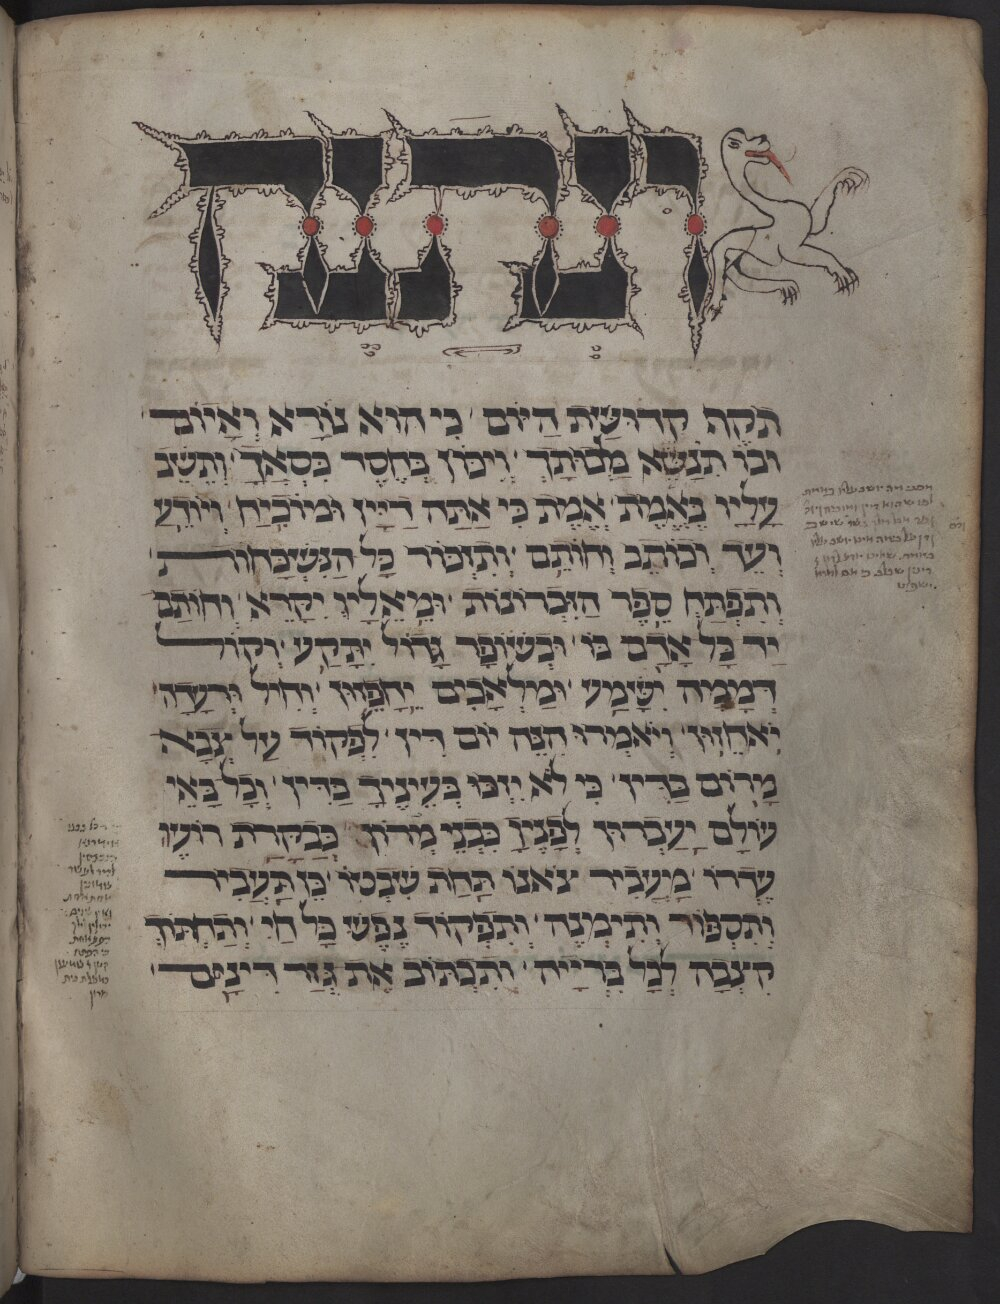 ונתנה
תקף קדושת היום כי הוא נורא ואיום
ובו תנשא מלכותך ויכון בחסד כסאך ותשב
עליו באמת אמת כי אתה דיין ומוכיח ויודע
ועד וכותב וחותם ותזכור כל הנשכחות
ותפתח ספר הזכרונות ומאליו יקרא וחותם
יד כל אדם בו ובשופר גדול יתקע וקול
דממה ישמע ומלאכים יחפזון וחיל ורעדה
יאחזון ויאמרו הנה יום דין לפקוד על צבא
מרום בדין כי לא יזכו בעיניך בדין וכל באי
עולם יעברון לפניך כבני מרון כבקרת רועה
עדרו מעביר צאנו תחת שבטו כן תעביר
ותספור ותימנה ותפקוד נפש כל חי ותחתוך
קצבה לכל ברייה ותכתוב את גזר דינם